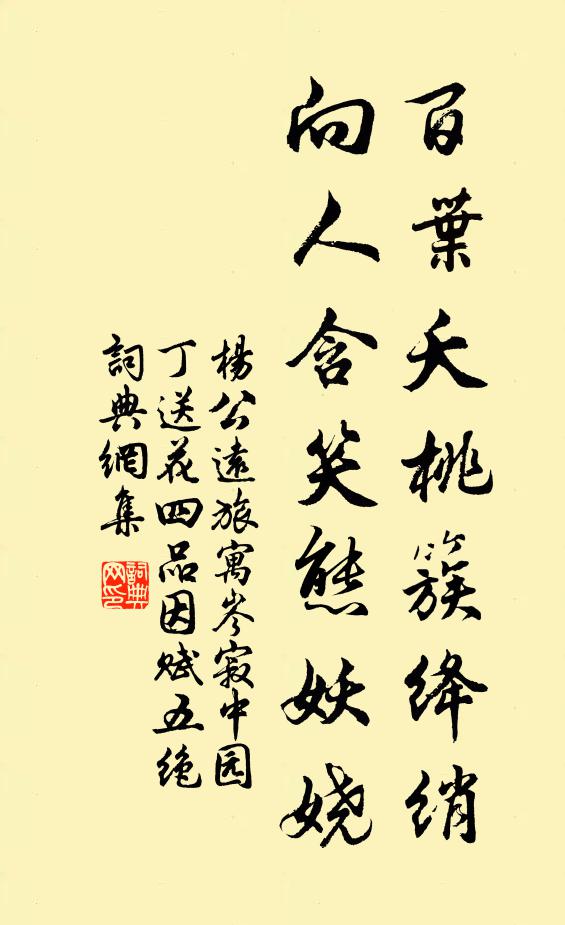 百葉夭桃簇绛绡
向人含笑態妖娆
楊公遠旅寓岑寂中园
丁送花四品因赋五绝
詞典網集
詞典网印